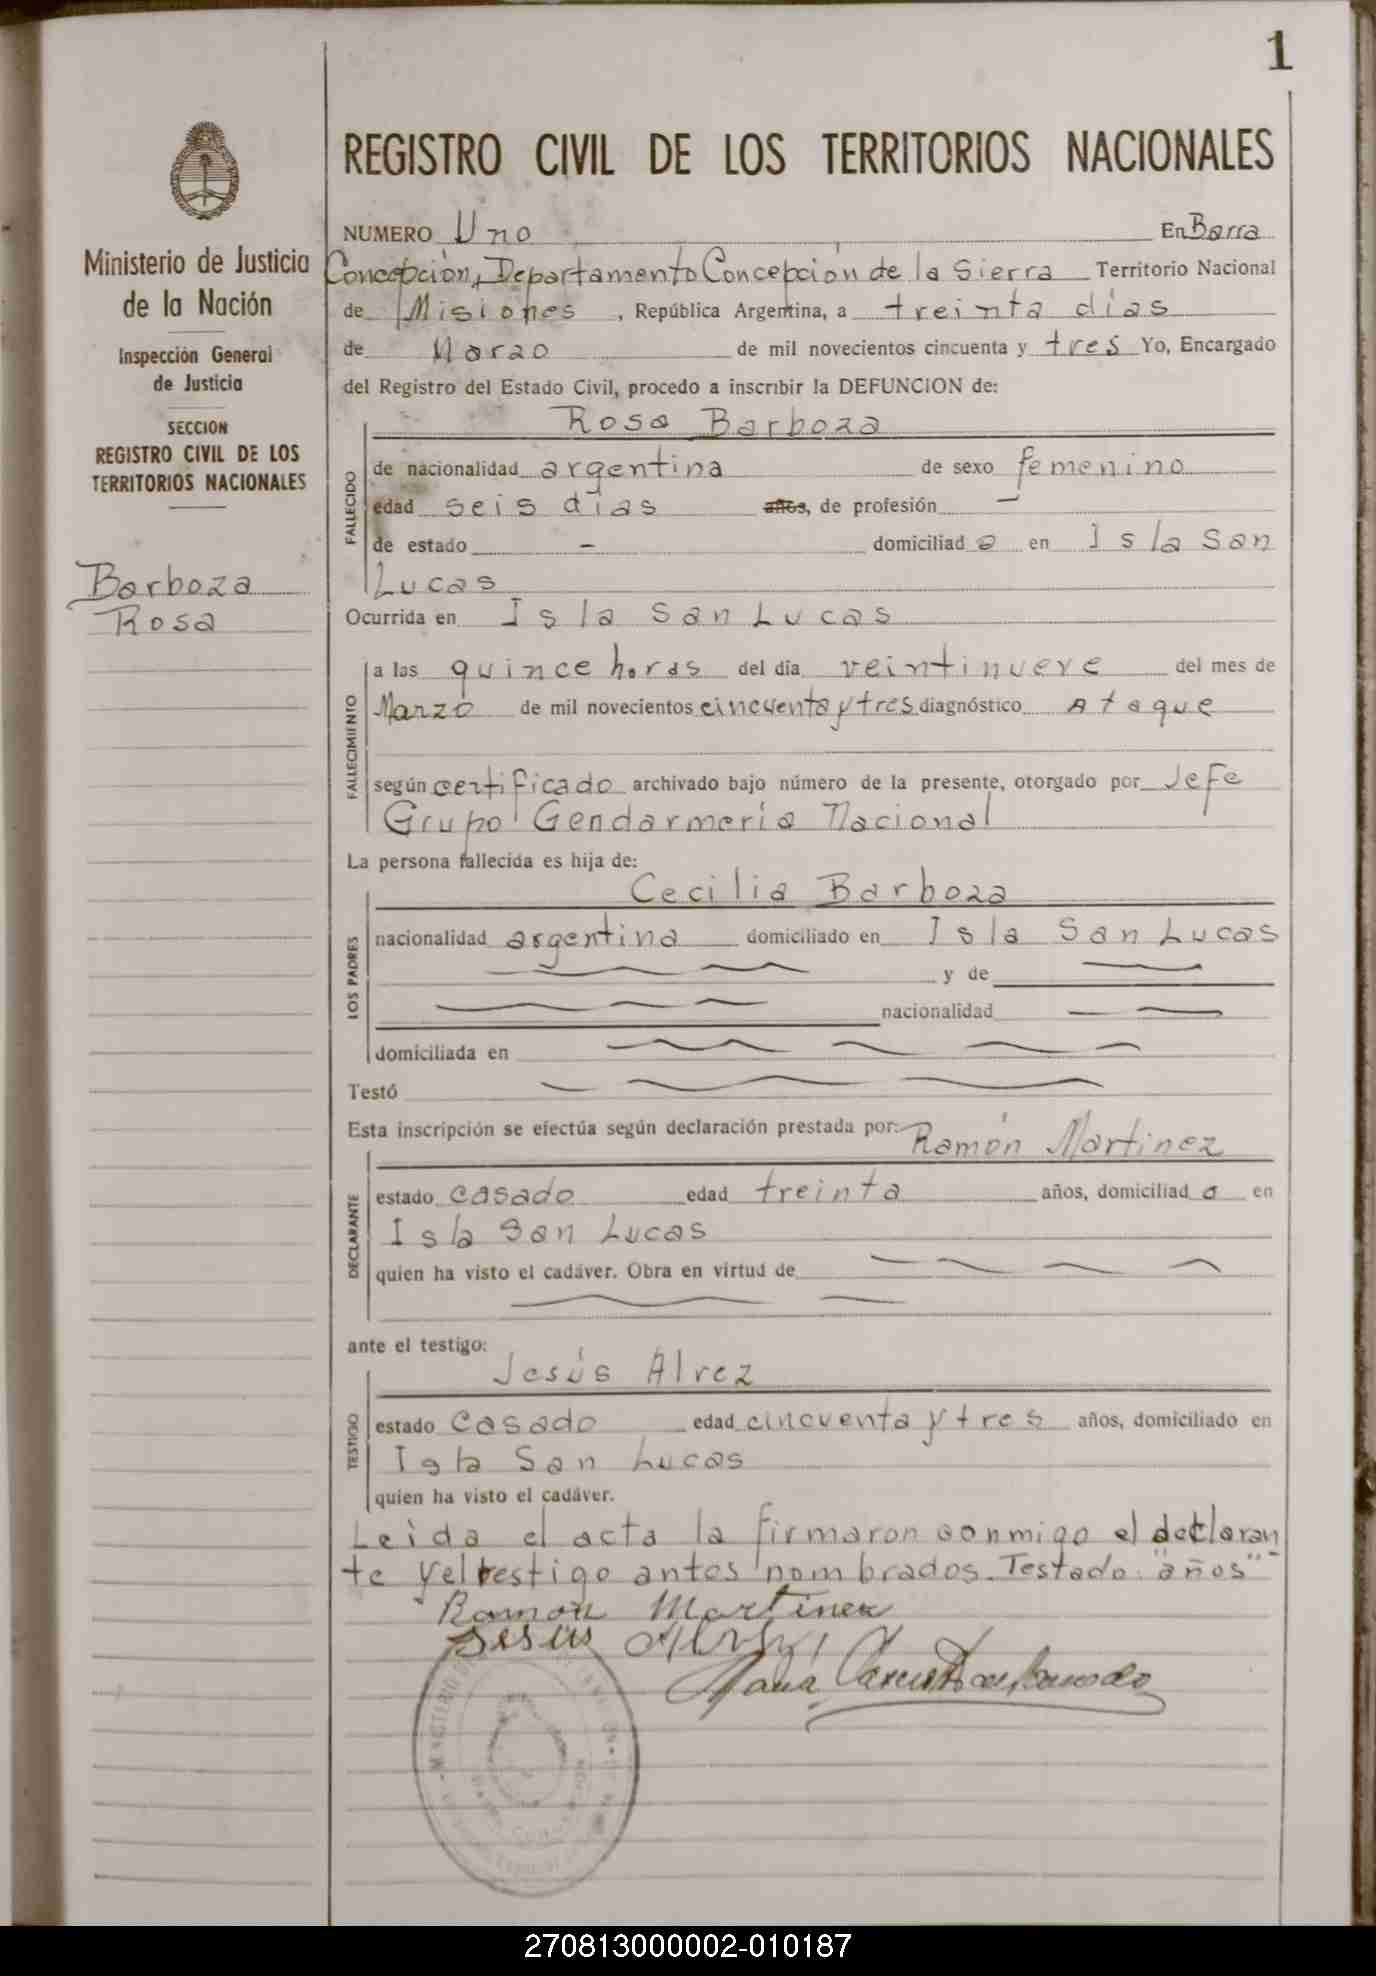 1
REGISTRO CIVIL DE LOS TERRITORIOS NACIONALES
Ministerio de Justicia
de la Nación
Inspección General
de Justicia
SECCION
REGISTRO CIVIL DE LOS
TERRITORIOS NACIONALES
Barboza
Rosa
NUMERO Uno En Barra
Concepción, Departamento Concepción de la Sierra Territorio Nacional
de Misiones, República Argentina, a treinta días
de Marzo de mil novecientos cincuenta y tres Yo, Encargado
del Registro del Estado Civil, procedo a inscribir la DEFUNCION de:
Rosa Barboza
FALLECIDO
de nacionalidad argentina de sexo femenino
edad seis días años, de profesión —
de estado - domiciliad a en Isla San
Lucas
Ocurrida en Isla San Lucas
FALLECIMIENTO
a las quince horas del día veintinueve del mes de
Marzo de mil novecientos cincuenta y tres diagnóstico Ataque
según certificado archivado bajo número de la presente, otorgado por Jefe
Grupo Gendarmería Nacional
La persona fallecida es hija de:
Cecilia Barboza
LOS PADRES
nacionalidad argentina domiciliado en Isla San Lucas
y de
nacionalidad
domiciliada en
Testó
Esta inscripción se efectúa según declaración prestada por: Ramón Martinez
DECLARANTE
estado casado edad treinta años, domiciliad o en
Isla San Lucas
quien ha visto el cadáver. Obra en virtud de
ante el testigo:
Jesús Alvez
TESTIGO
estado Casado edad cincuenta y tres años, domiciliado en
Isla San Lucas
quien ha visto el cadáver.
Leida el acta la firmaron conmigo el declaran
te y el testigo antes nombrados. Testado: "años"-
Ramon Martinez
Jesus
270813000002-010187